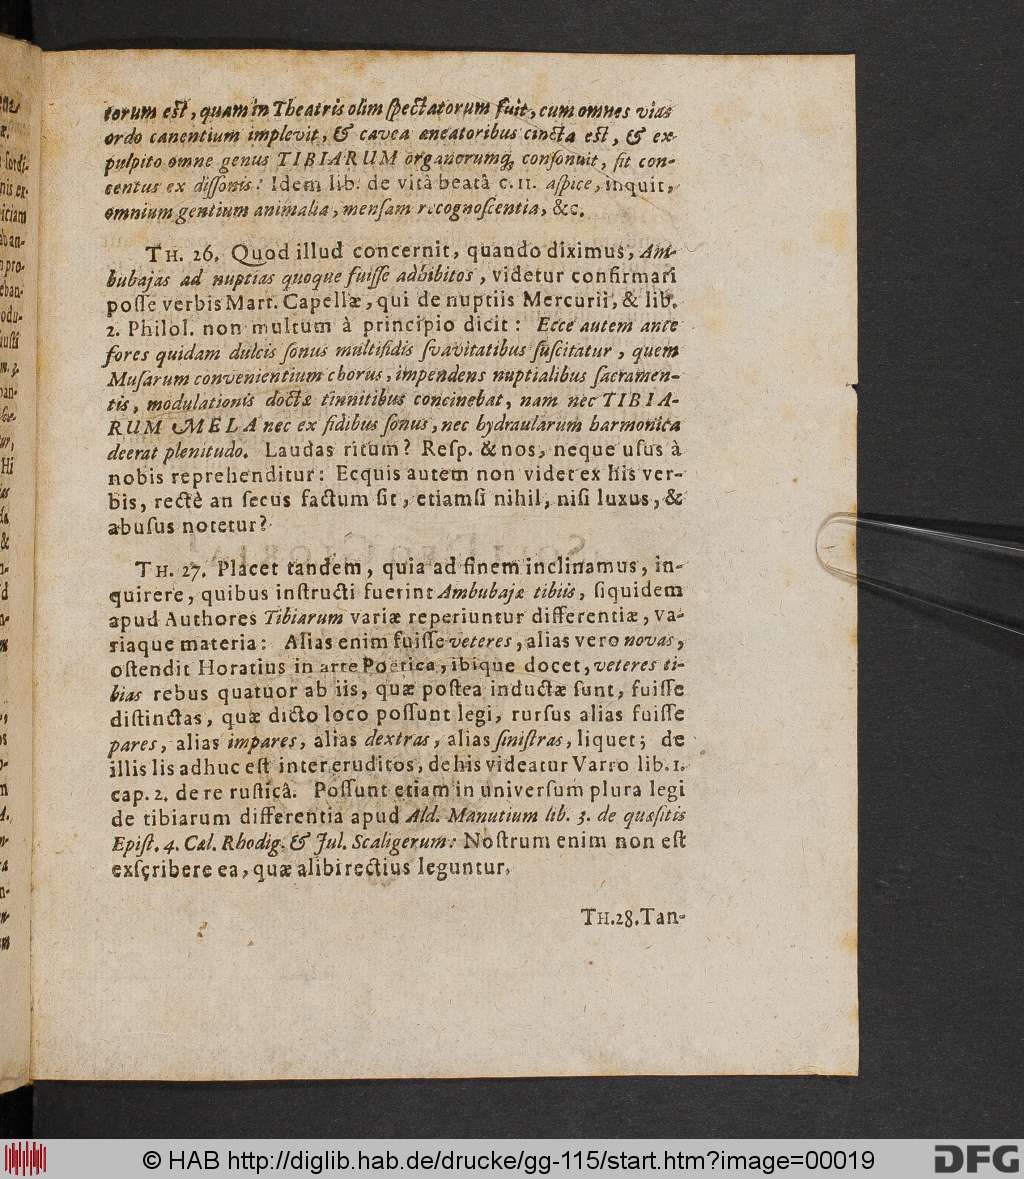 torum est, quam in Theatris olim spectatorum fuit, cum omnes vias
ordo canentium implevit, & cavea æneatoribus cincta est, & ex
pulpito omne genus TIBIARUM organorumq; consonuit, fit con-
centus ex dissonis: Idem lib. de vitâ beatâ c. 11. aspice, inquit,
omnium gentium animalia, mensam recognoscentia, &c.
TH. 26. Quod illud concernit, quando diximus, Am-
bubajas ad nuptias quoque fuisse adhibitos, videtur confirmari
posse verbis Mart. Capellæ, qui de nuptiis Mercurii, & lib.
2. Philol. non multum à principio dicit: Ecce autem ante
fores quidam dulcis sonus multifidis svavitatibus suscitatur, quem
Musarum convenientium chorus, impendens nuptialibus sacramen-
tis, modulationis doctæ tinnitibus concinebat, nam nec TIBIA-
RUM MELA nec ex fidibus sonus, nec hydraularum harmonica
deerat plenitudo. Laudas ritum? Resp. & nos, neque usus à
nobis reprehenditur: Ecquis autem non videt ex his ver-
bis, rectè an secus factum sit, etiamsi nihil, nisi luxus, &
abusus notetur?
TH. 27. Placet tandem, quia ad finem inclinamus, in-
quirere, quibus instructi fuerint Ambubajæ tibiis, siquidem
apud Authores Tibiarum variæ reperiuntur differentiæ, va-
riaque materia: Alias enim fuisse veteres, alias vero novas,
ostendit Horatius in arte Poëtica, ibique docet, veteres ti-
bias rebus quatuor ab iis, quæ postea inductæ sunt, fuisse
distinctas, quæ dicto loco possunt legi, rursus alias fuisse
pares, alias impares, alias dextras, alias sinistras, liquet; de
illis lis adhuc est inter eruditos, de his videatur Varro lib. 1.
cap. 2. de re rusticâ. Possunt etiam in universum plura legi
de tibiarum differentia apud Ald. Manutium lib. 3. de quæsitis
Epist. 4. Cæl. Rhodig. & Jul. Scaligerum: Nostrum enim non est
exscribere ea, quæ alibi rectius leguntur.
TH. 28. Tan-
© HAB http://diglib.hab.de/drucke/gg-115/start.htm?image=00019
DFG